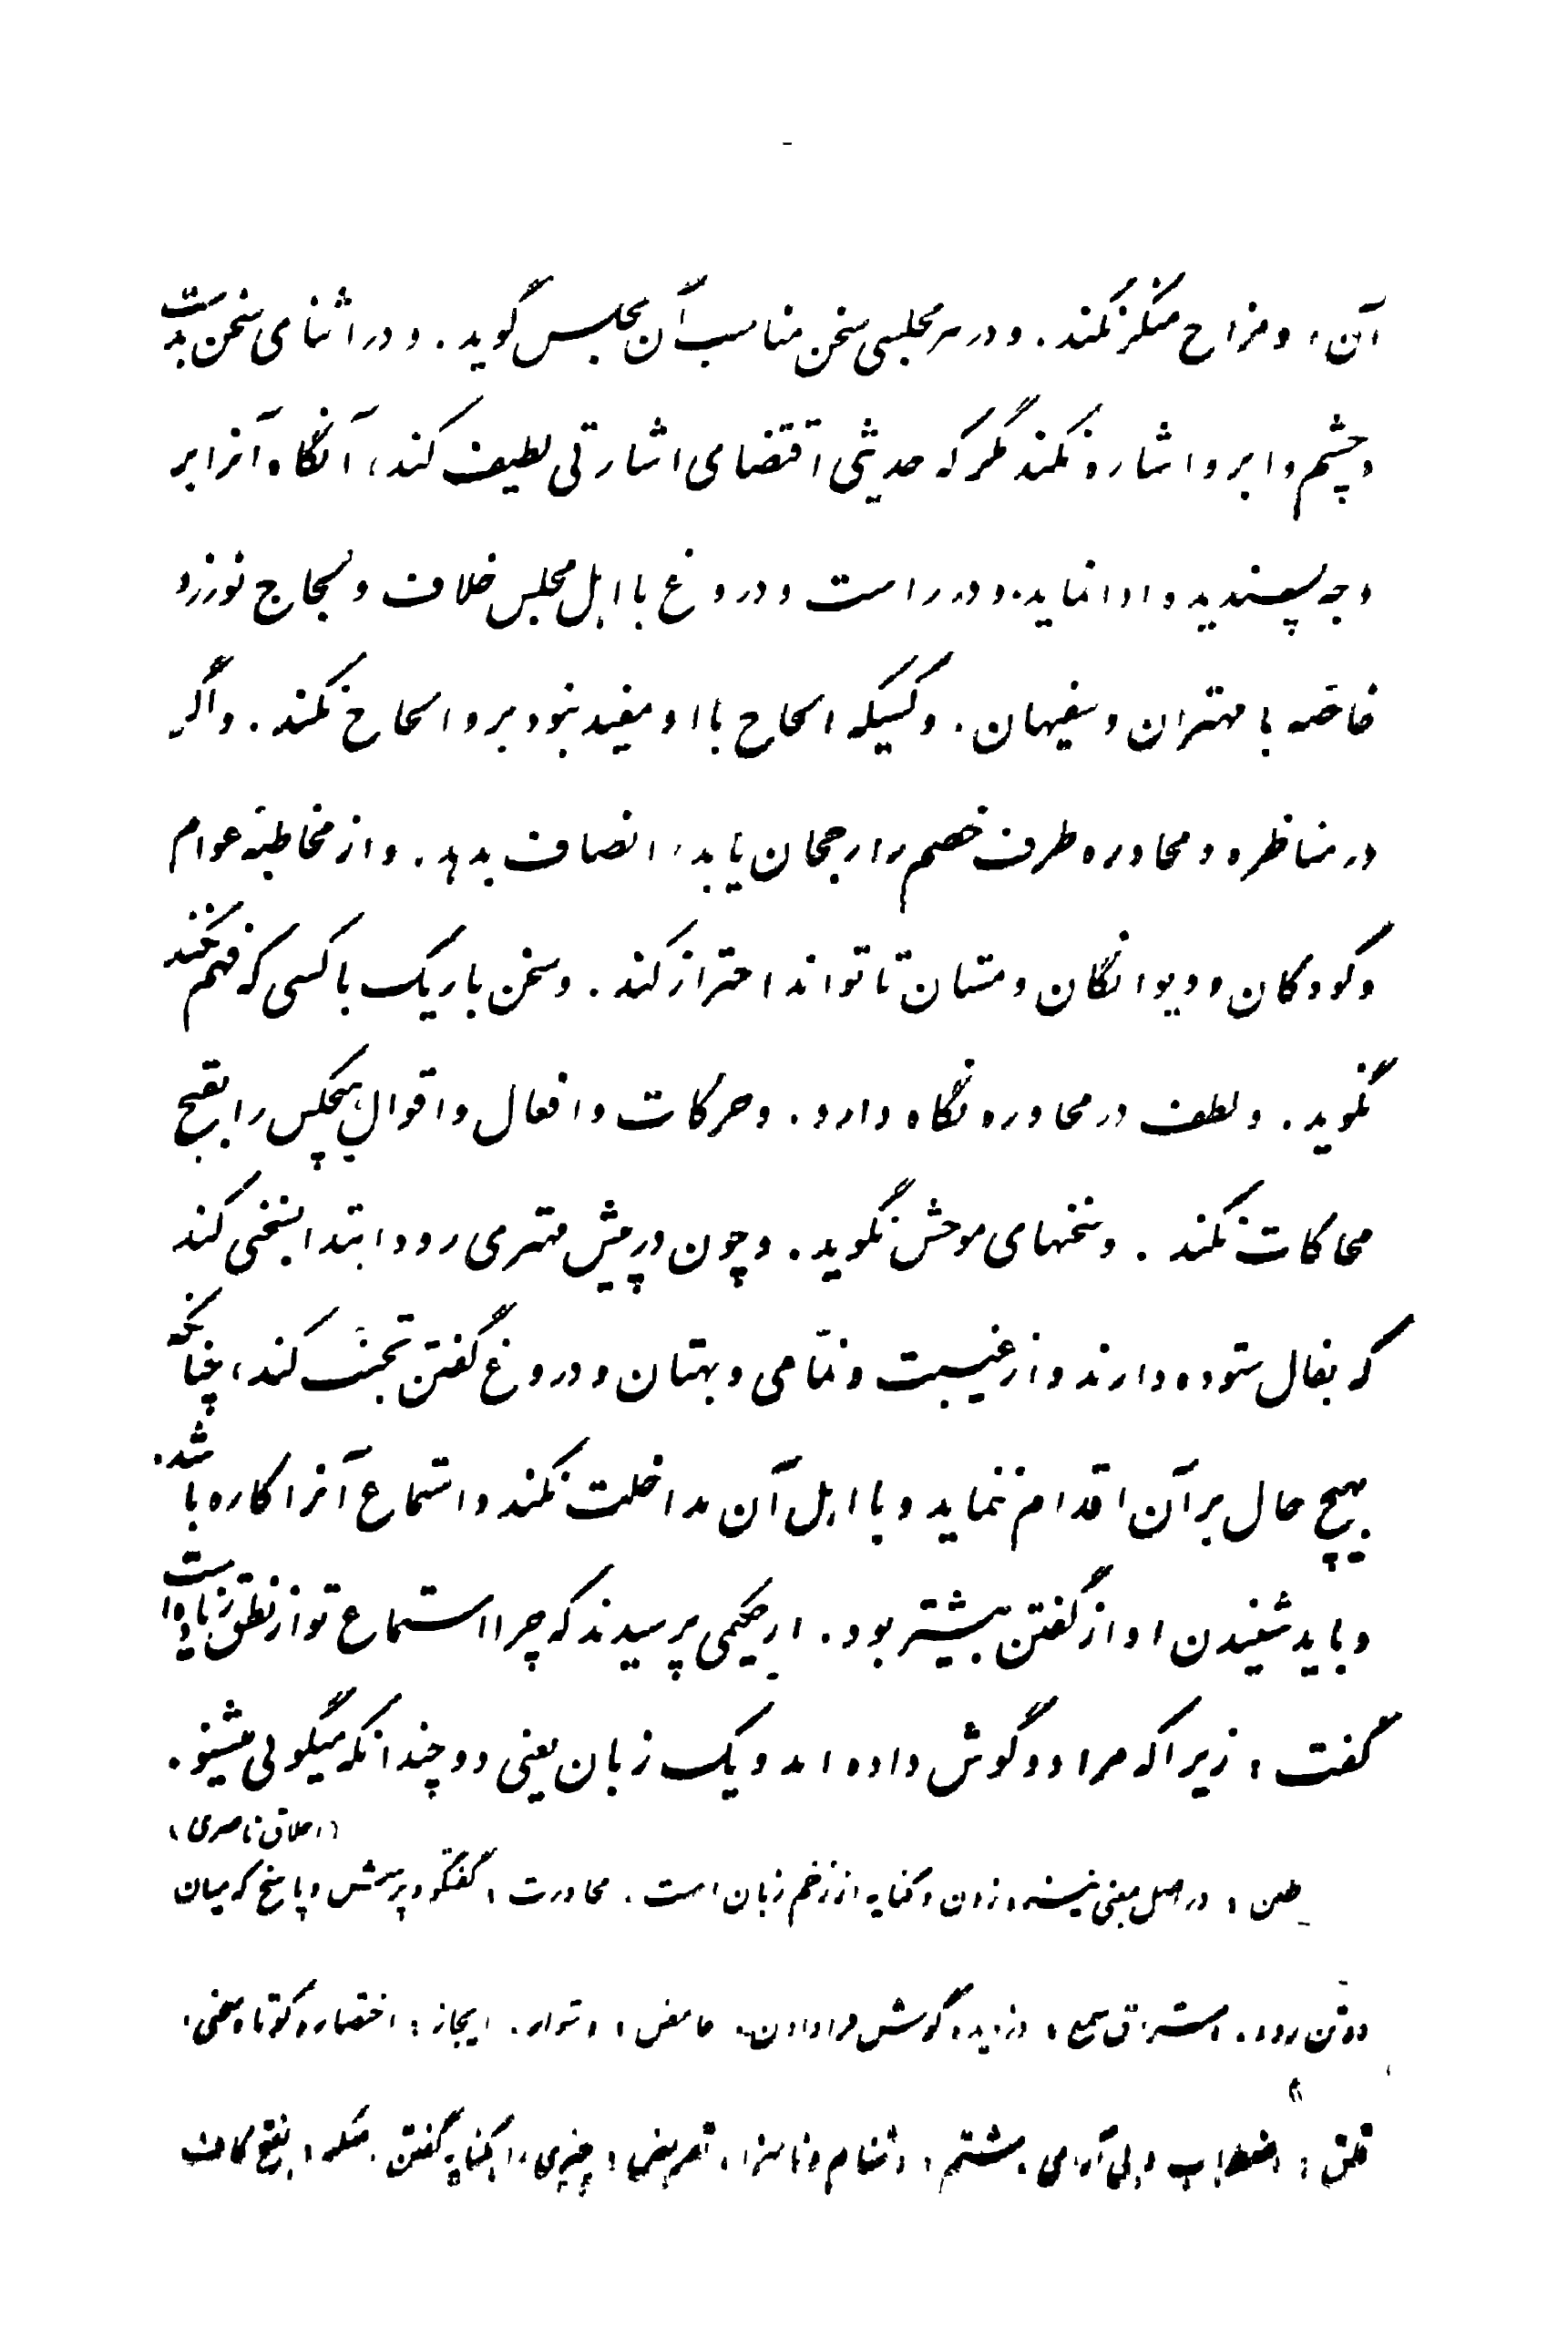 آن، و مزاح منکر نکند. و در هر مجلسی سخن مناسب آن مجلس گوید. و در اثنای سخن بدست
و چشم و ابرو اشاره نکند مگر که حدیثی اقتضای اشارتی لطیف کند، آنگاه آنرا بر
وجه پسندیده ادا نماید. و در راست و دروغ با اهل مجلس خلاف و لجاج نورزد
خاصه با مهتران و سفیهان. و کسیکه الحاح با او مفید نبود بر او الحاح نکند. و اگر
در مناظره و محاوره طرف خصم را رجحان یابد، انصاف بدهد. و از مخاطبهٔ عوام
و کودکان و دیوانگان و مستان تا تواند احتراز کند. و سخن باریک با کسی که فهم نکند
نگوید. و لطف در محاوره نگاه دارد. و حرکات و افعال و اقوال هیچکس را بقبح
محاکات نکند. و سخنهای موحش نگوید. و چون در پیش مهتری رود ابتدا بسخنی کند
که بفال ستوده دارند و از غیبت و نمّامی و بهتان و دروغ گفتن تجنّب کند، چنانکه
بهیچ حال بر آن اقدام ننماید و با اهل آن مداخلت نکند و استماع آنرا کاره باشد.
و باید شنیدن او از گفتن بیشتر بود. از حکیمی پرسیدند که چرا استماع تو از نطق زیاده است
گفت: زیرا که مرا دو گوش داده اند و یک زبان یعنی دو چندانکه میگوئی میشنو.
(اخلاق ناصری)
طعن: در اصل بمعنی نیزه زدن و کنایه از زخم زبان است. محاورت: گفتگو و پرسش و پاسخ که میان
دو تن رود. استراق سمع: دزدیده گوش فرا دادن. غامض: دشوار. ایجاز: اختصار و کوتاه سخنی.
قلق: اضطراب و بی آرامی. شتم: دشنام و ناسزا. تعریض: چیزی را بکنایه گفتن. منکر: بفتح کاف